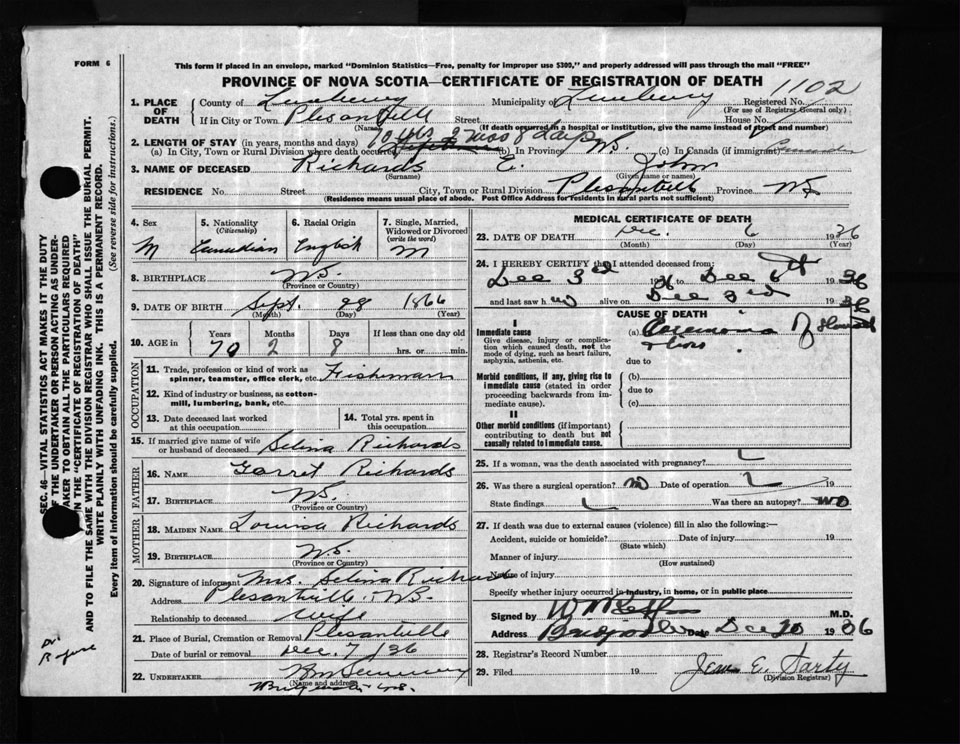 FORM 6
This form if placed in an envelope, marked "Dominion Statistics—Free, penalty for improper use $300," and properly addressed will pass through the mail "FREE"
PROVINCE OF NOVA SCOTIA—CERTIFICATE OF REGISTRATION OF DEATH
1102
1. PLACE OF DEATH
County of Lunenburg Municipality of Lunenburg Registered No.
(For use of Registrar General only)
If in City or Town Plesantville Street House No.
(Name) (If death occurred in a hospital or institution, give the name instead of street and number)
2. LENGTH OF STAY (in years, months and days) 70 yrs 2 mos 8 days
(a) In City, Town or Rural Division where death occurred (b) In Province N.S. (c) In Canada (if immigrant)
3. NAME OF DECEASED Richards E. John
(Surname) (Given name or names)
RESIDENCE No. Street City, Town or Rural Division Plesantville Province N.S.
(Residence means usual place of abode. Post Office Address for residents in rural parts not sufficient)
4. Sex M
5. Nationality (Citizenship) Canadian
6. Racial Origin English
7. Single, Married, Widowed or Divorced (write the word) M
8. BIRTHPLACE N.S.
(Province or Country)
9. DATE OF BIRTH Sept. 28 1866
(Month) (Day) (Year)
10. AGE in Years Months Days If less than one day old
70 2 8 hrs. or min.
OCCUPATION
11. Trade, profession or kind of work as spinner, teamster, office clerk, etc. Fishermann
12. Kind of industry or business, as cotton-mill, lumbering, bank, etc.
13. Date deceased last worked at this occupation
14. Total yrs. spent in this occupation
15. If married give name of wife or husband of deceased Selina Richards
FATHER
16. NAME Garret Richards
17. BIRTHPLACE N.S.
(Province or Country)
MOTHER
18. MAIDEN NAME Louisa Richards
19. BIRTHPLACE N.S.
(Province or Country)
20. Signature of informant Mrs. Selina Richards
Address Plesantville N.S.
Relationship to deceased Wife
21. Place of Burial, Cremation or Removal Plesantville
Date of burial or removal Dec. 7/36
22. UNDERTAKER
(Name and address)
MEDICAL CERTIFICATE OF DEATH
23. DATE OF DEATH Dec. 6 1936
(Month) (Day) (Year)
24. I HEREBY CERTIFY that I attended deceased from:
Dec 3rd 1936 to Dec 6th 1936
and last saw h alive on Dec 3rd 1936
CAUSE OF DEATH
I
Immediate cause
Give disease, injury or complication which caused death, not the mode of dying, such as heart failure, asphyxia, asthenia, etc.
(a)
due to
Morbid conditions, if any, giving rise to immediate cause (stated in order proceeding backwards from immediate cause).
(b)
due to
(c)
II
Other morbid conditions (if important) contributing to death but not causally related to immediate cause.
25. If a woman, was the death associated with pregnancy?
26. Was there a surgical operation? no Date of operation 19
State findings Was there an autopsy? no
27. If death was due to external causes (violence) fill in also the following:—
Accident, suicide or homicide? Date of injury 19
(State which)
Manner of injury
(How sustained)
Nature of injury
Specify whether injury occurred in industry, in home, or in public place
Signed by M.D.
Address Date Dec 20 1936
28. Registrar's Record Number
29. Filed 19
(Division Registrar)
SEC. 46—VITAL STATISTICS ACT MAKES IT THE DUTY OF THE UNDERTAKER OR PERSON ACTING AS UNDERTAKER TO OBTAIN ALL THE PARTICULARS REQUIRED IN THE "CERTIFICATE OF REGISTRATION OF DEATH"
AND TO FILE THE SAME WITH THE DIVISION REGISTRAR WHO SHALL ISSUE THE BURIAL PERMIT.
WRITE PLAINLY WITH UNFADING INK. THIS IS A PERMANENT RECORD.
Every item of information should be carefully supplied. (See reverse side for instructions.)